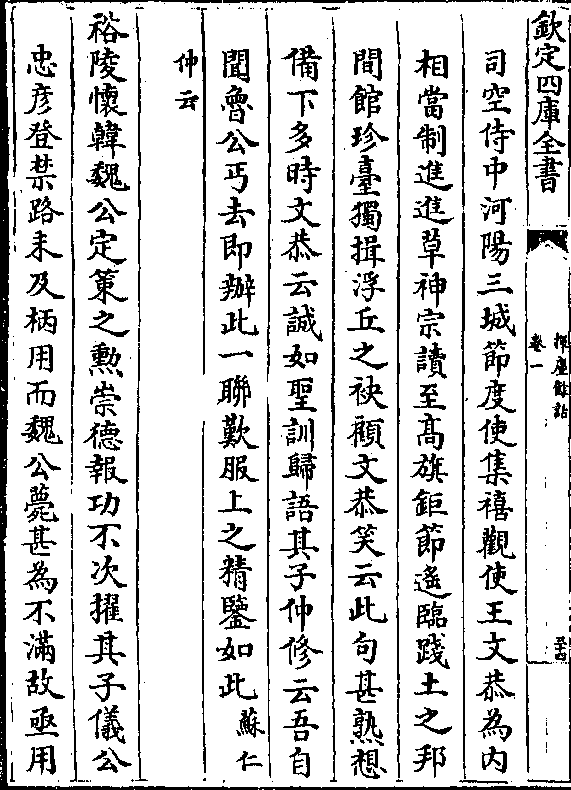 欽定四庫全書
揮麈餘話
卷一
司空侍中河陽三城節度使集禧觀使王文恭為内
相當制進進草神宗讀至髙旗鉅節遙臨踐土之邦
間館珍臺獨揖浮丘之袂顧文恭笑云此句甚熟想
備下多時文恭云誠如聖訓歸語其子仲修云吾自
聞魯公丐去即辦此一聯歎服上之精鑒如此蘇仁
仲云
裕陵懷韓魏公定策之勲崇德報功不次擢其子儀公
忠彦登禁路未及柄用而魏公薨甚為不滿故亟用